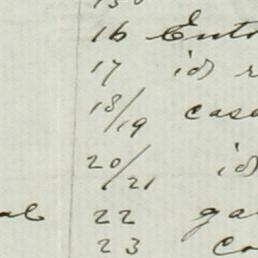 16 Ento
17 id r
18/19 case
20/21 id
22 ga
23 Co